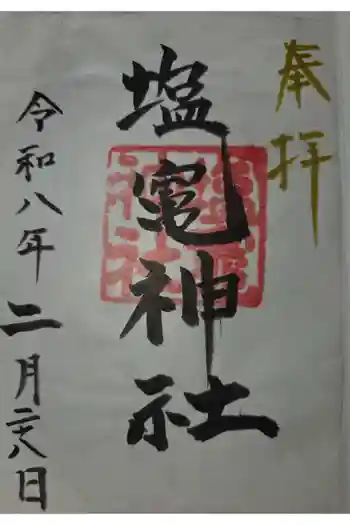 奉拝
塩竈神社
令和八年二月二十八日